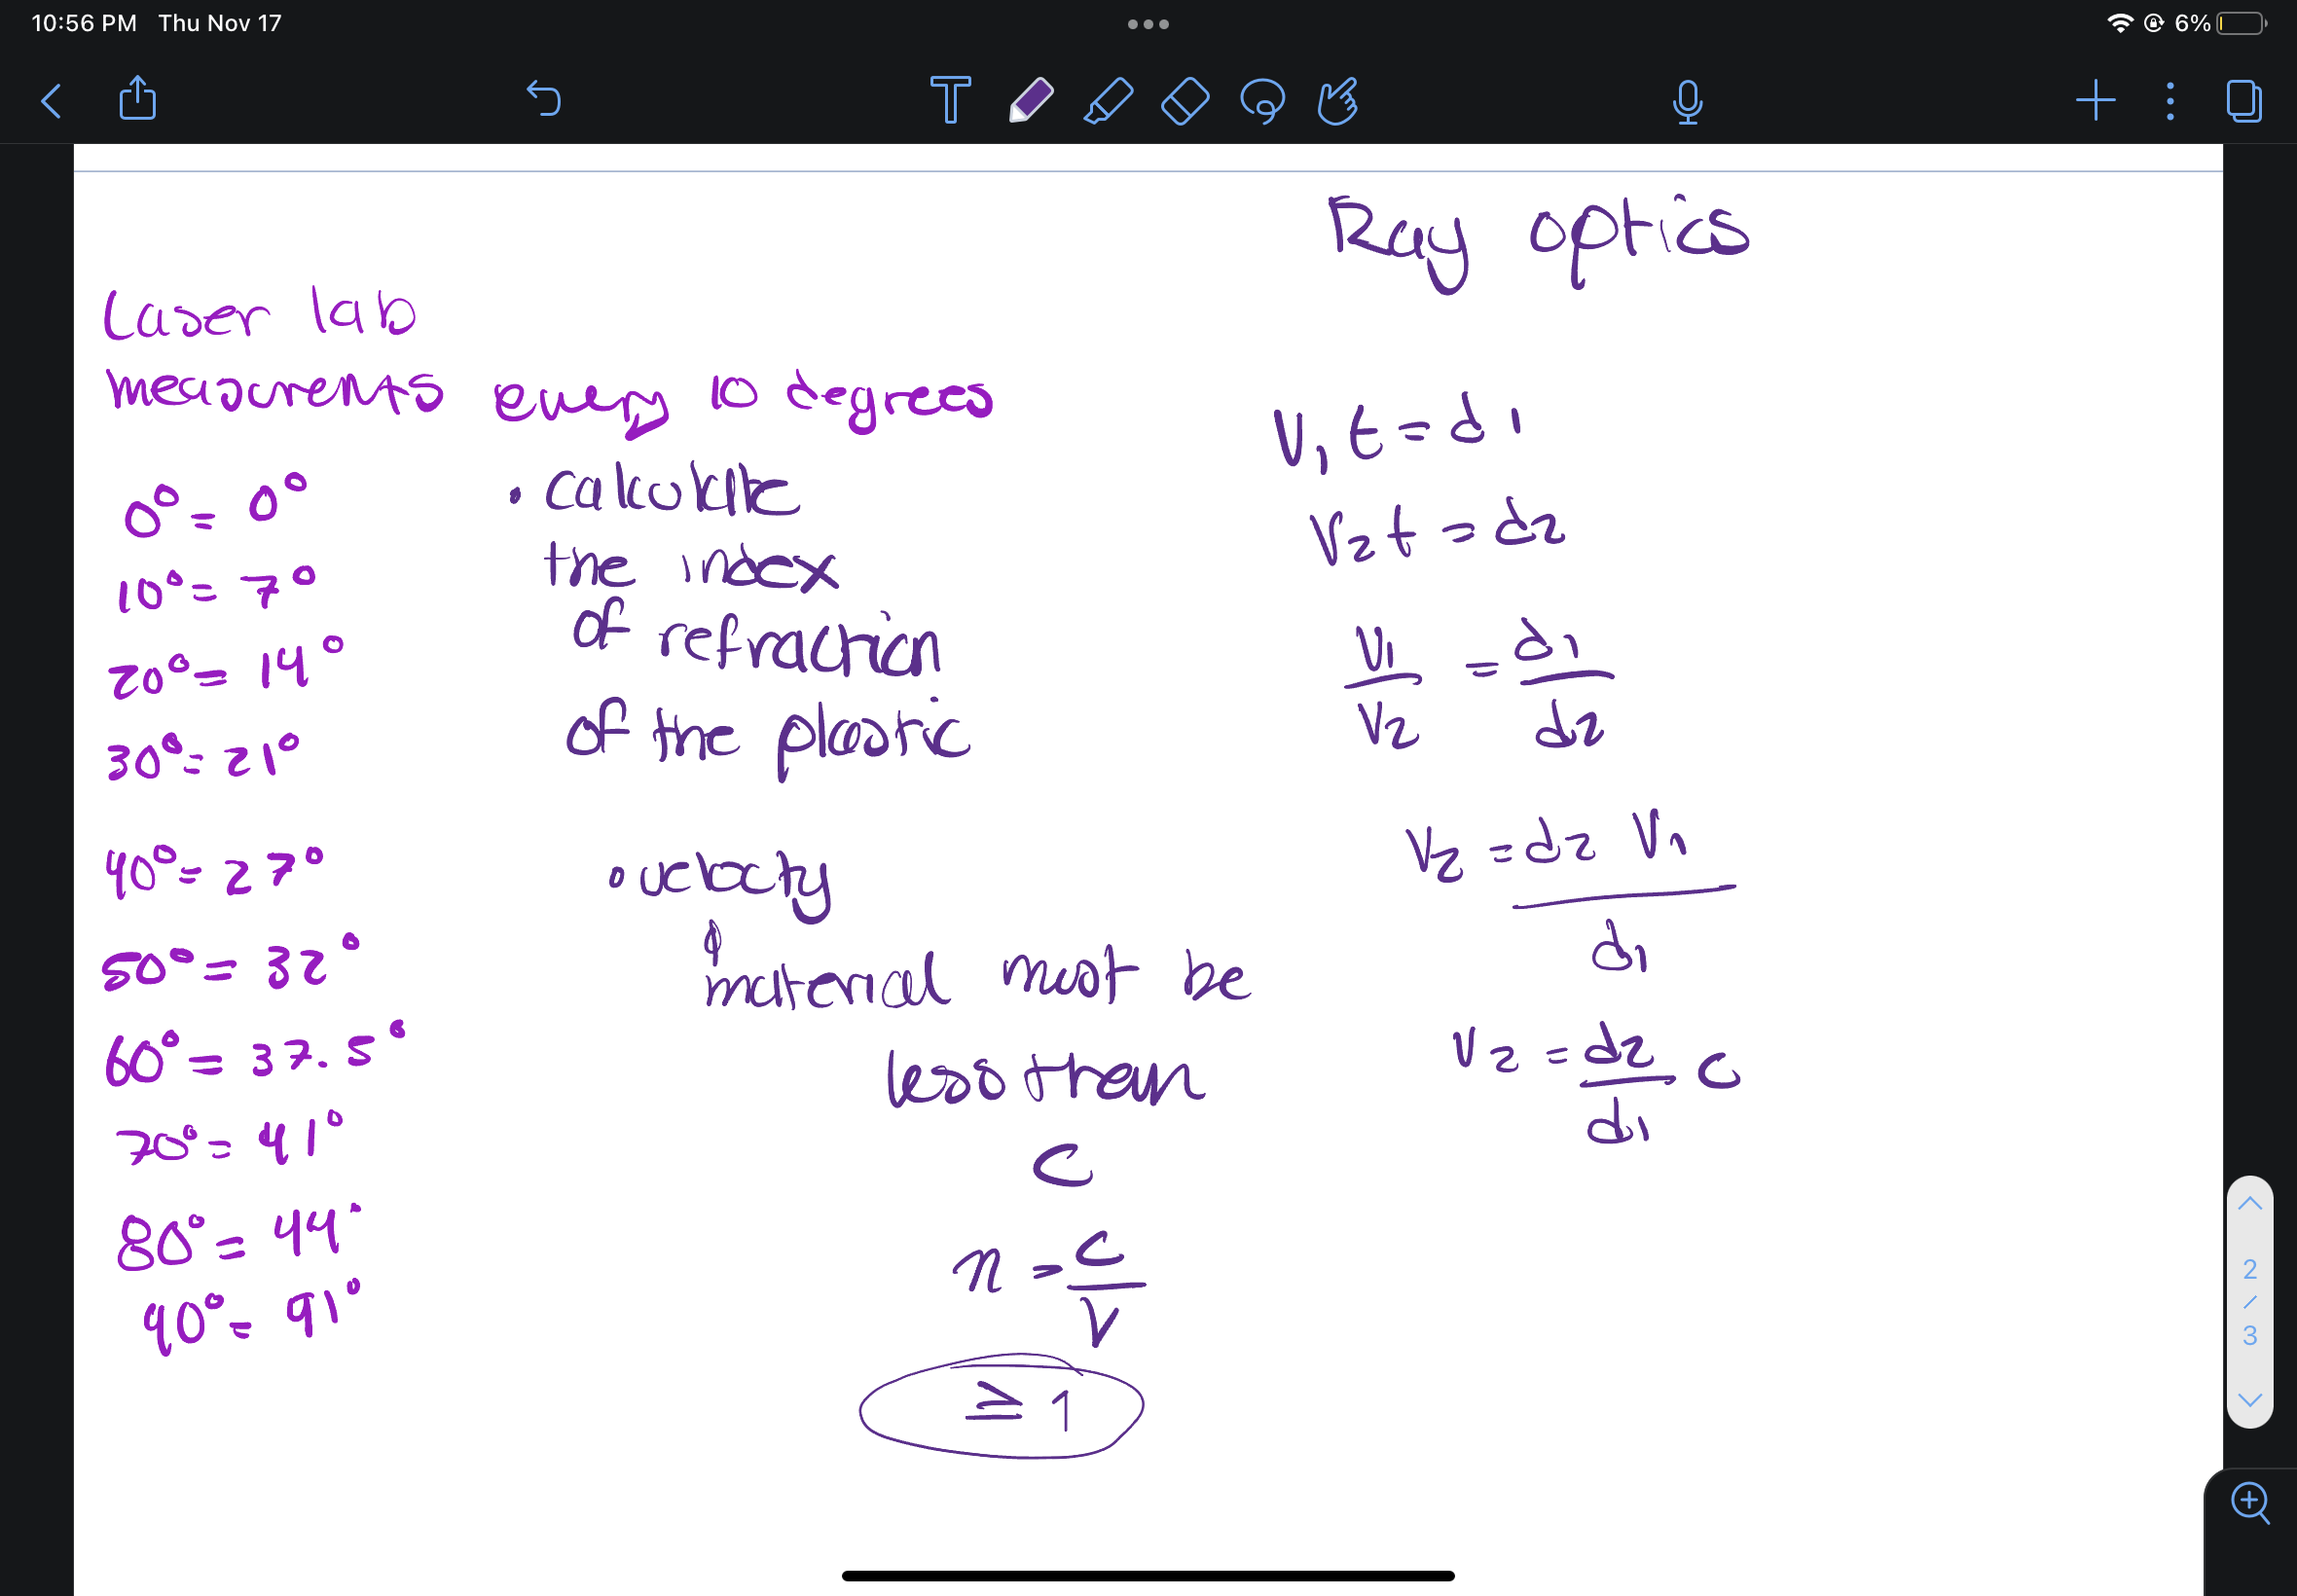 10:56 PM Thu Nov 17
6%
Ray optics
Laser lab
measurements every 10 degrees
0° = 0°
10° = 7°
20° = 14°
30° = 21°
40° = 27°
50° = 32°
60° = 37.5°
70° = 41°
80° = 44°
90° = 91°
• calculate
the index
of refraction
of the plastic
• velocity
material must be
less than
C
n = c
V
≥ 1
V1 t = d1
V2 t = d2
V1 = d1
V2 d2
V2 = d2 V1
d1
V2 = d2 c
d1
2
/
3